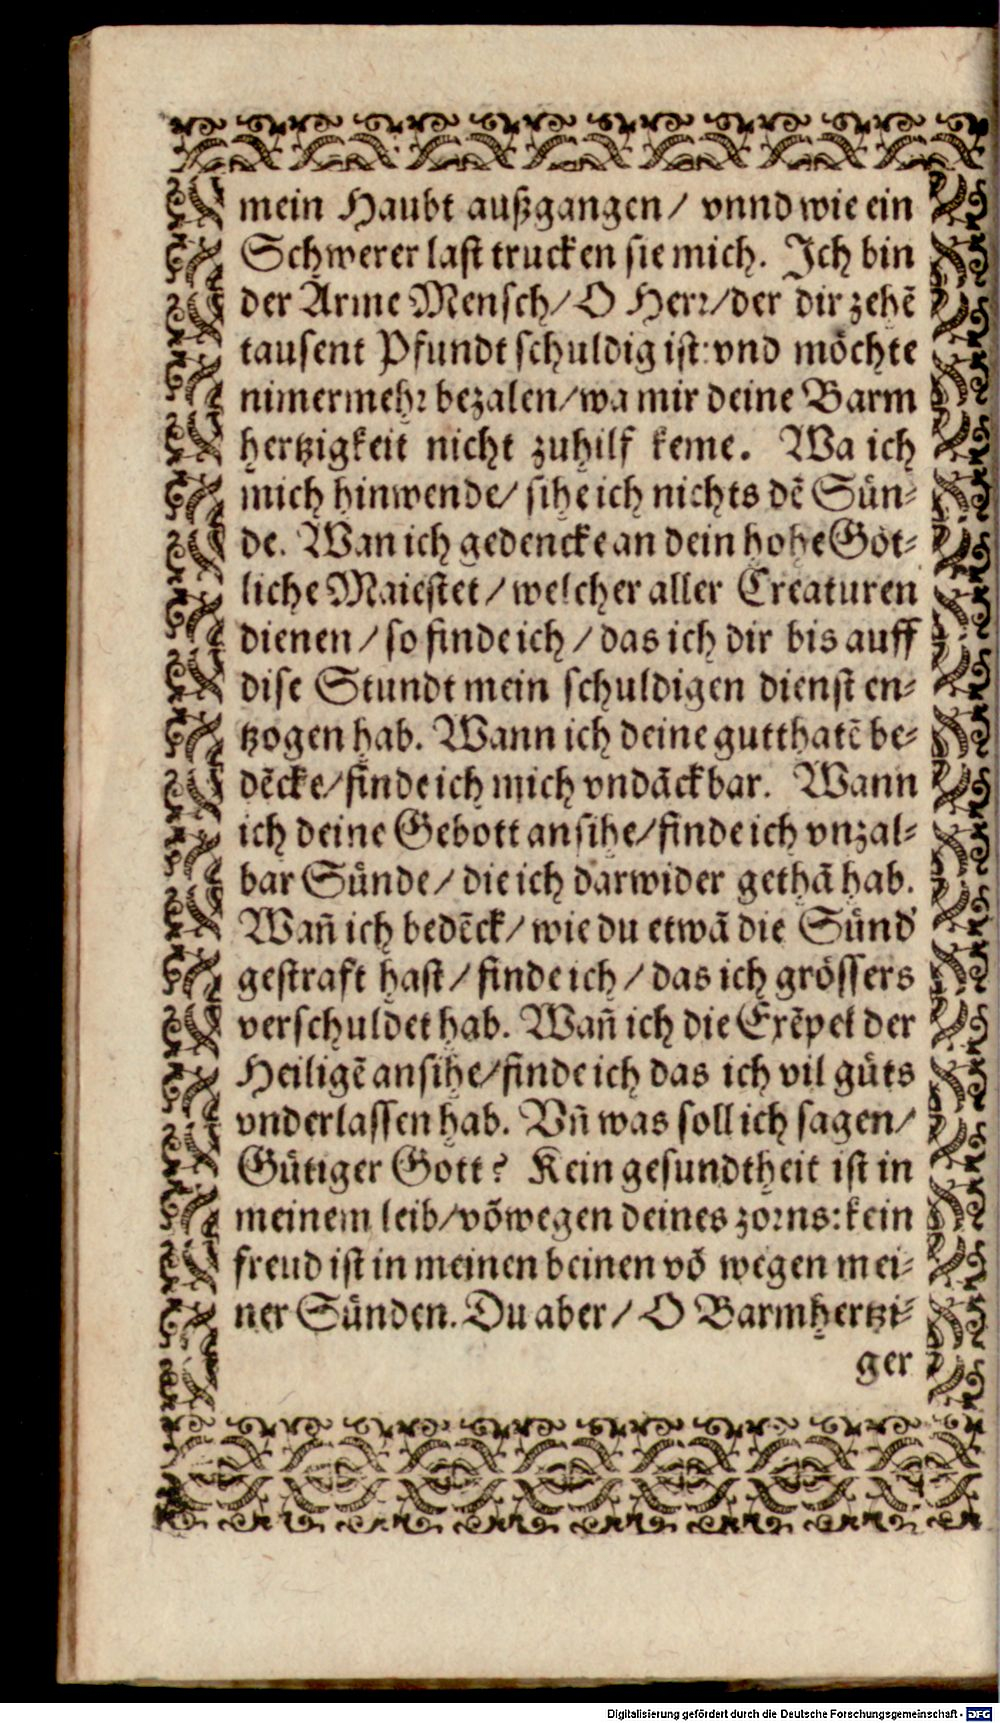 mein Haubt außgangen/ vnnd wie ein
Schwerer last trucken sie mich. Ich bin
der Arme Mensch/ O Herr/ der dir zehẽ
tausent Pfundt schuldig ist: vnd möchte
nimermehr bezalen/ wa mir deine Barm
hertzigkeit nicht zuhilf keme. Wa ich
mich hinwende/ sihe ich nichts dẽ Sün-
de. Wan ich gedencke an dein hohe Göt-
liche Maiestet/ welcher aller Creaturen
dienen/ so finde ich/ das ich dir bis auff
dise Stundt mein schuldigen dienst en-
tzogen hab. Wann ich deine gutthatẽ be-
dẽcke/ finde ich mich vndãckbar. Wann
ich deine Gebott ansihe/ finde ich vnzal-
bar Sünde/ die ich darwider gethã hab.
Wañ ich bedẽck/ wie du etwã die Sünd
gestraft hast/ finde ich/ das ich grössers
verschuldet hab. Wañ ich die Exẽpel der
Heiligẽ ansihe/ finde ich das ich vil güts
vnderlassen hab. Vñ was soll ich sagen/
Gütiger Gott? Kein gesundtheit ist in
meinem leib/ võ wegen deines zorns: kein
freud ist in meinen beinen võ wegen mei-
ner Sünden. Du aber/ O Barmhertzi-
ger
Digitalisierung gefördert durch die Deutsche Forschungsgemeinschaft - DFG